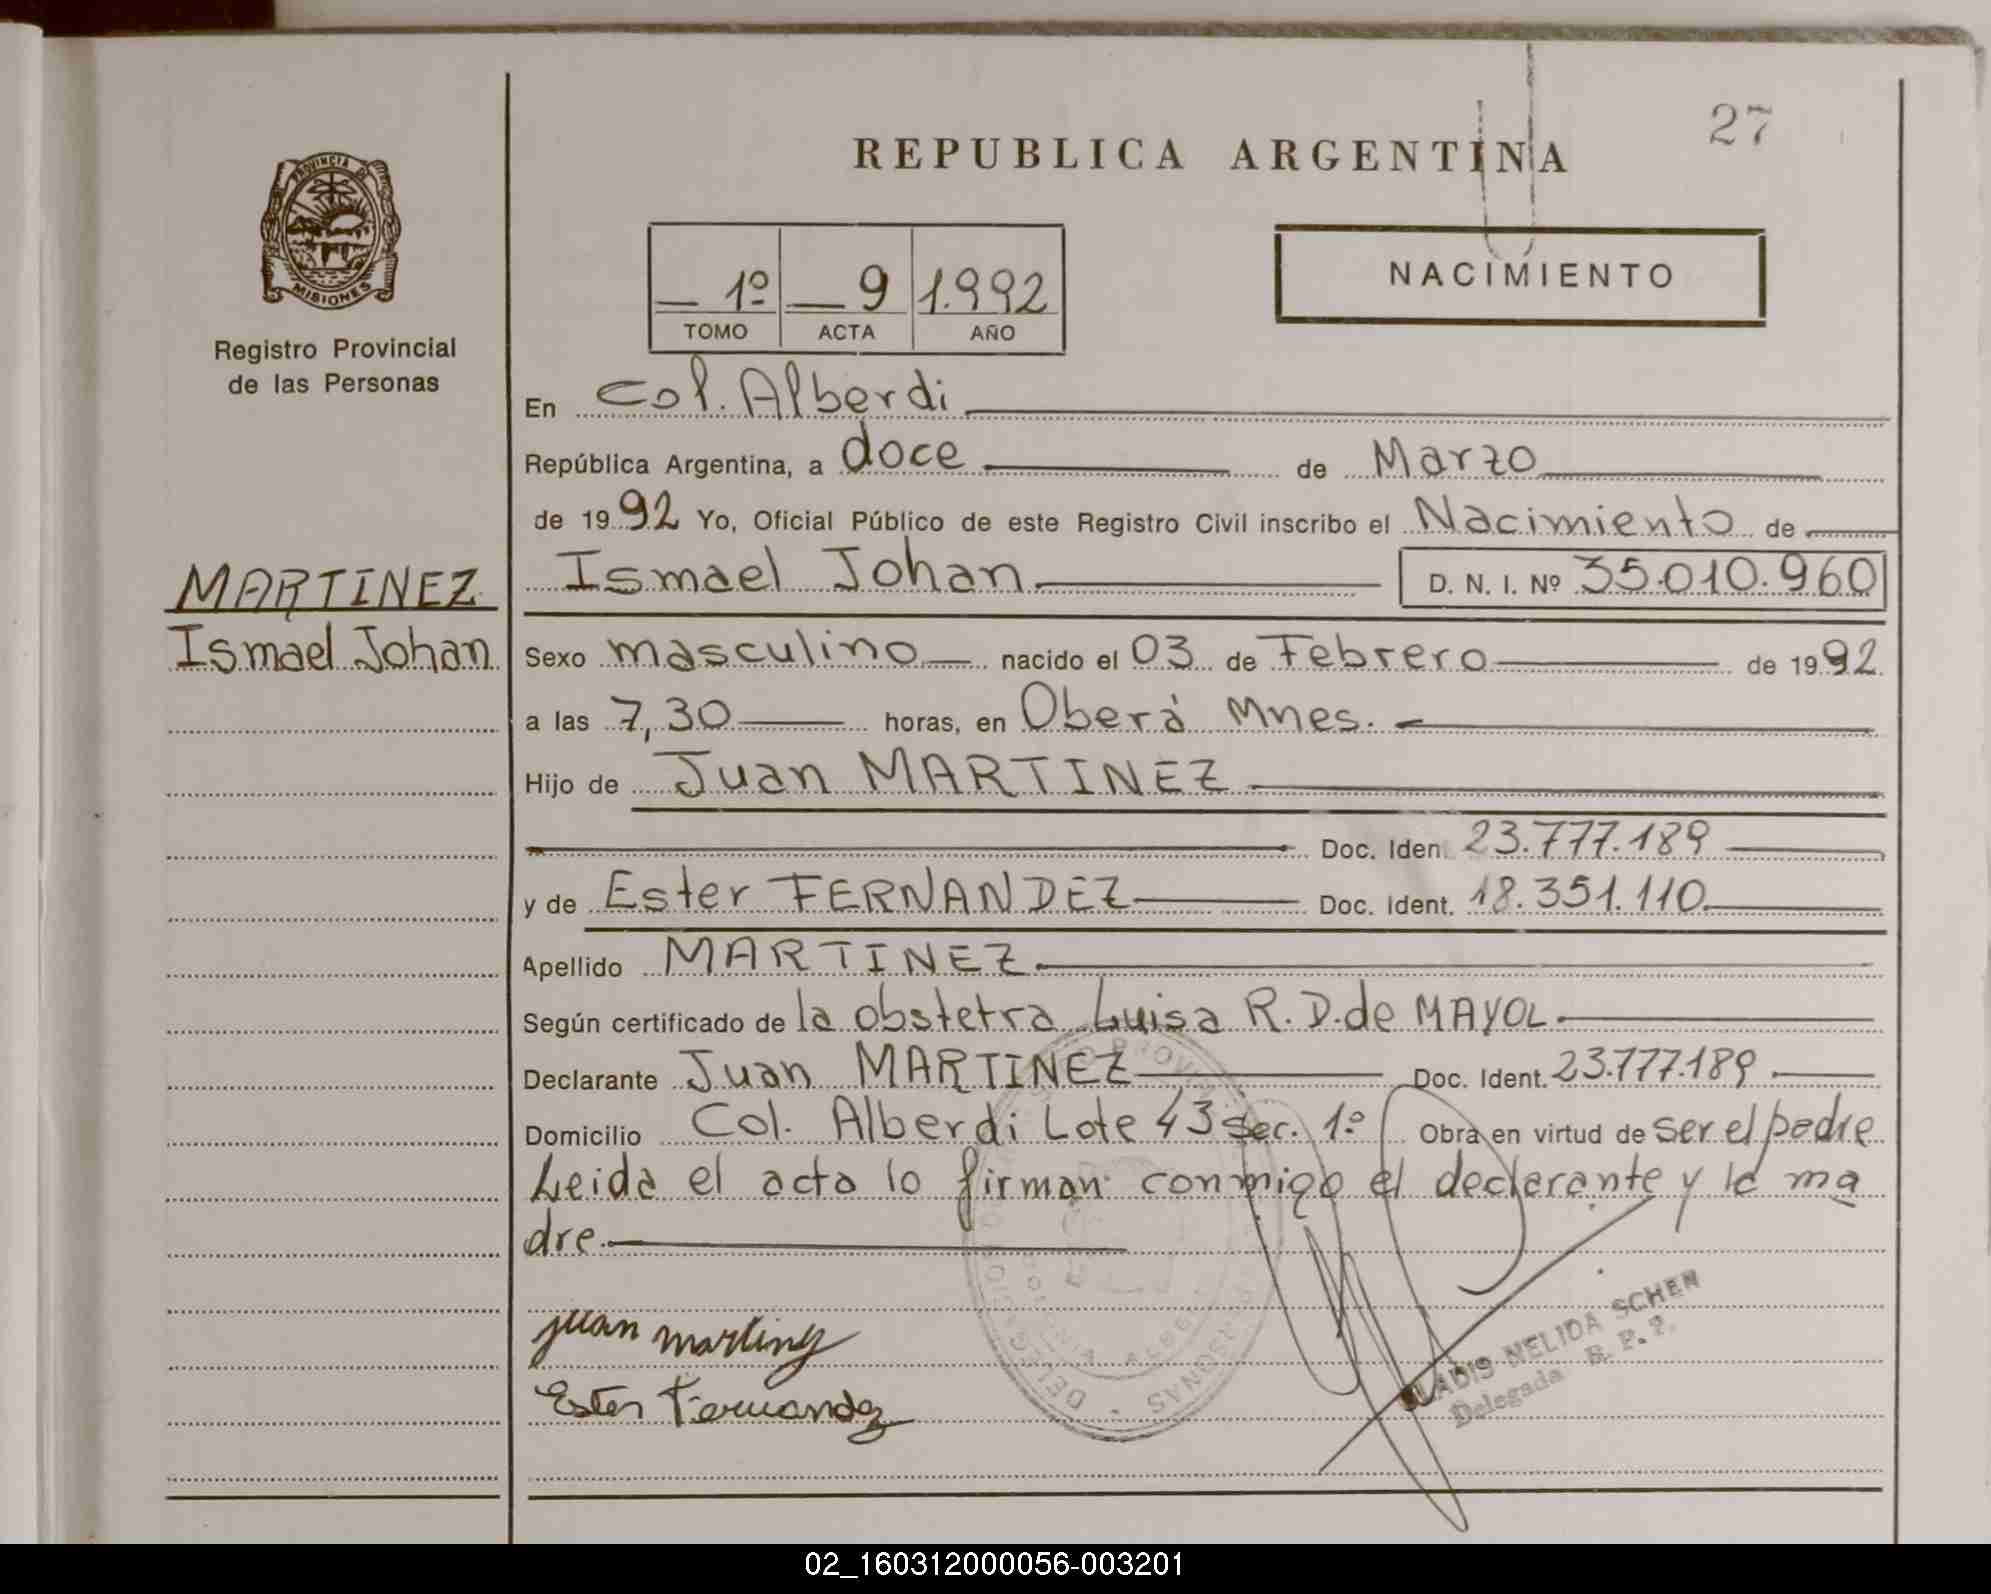 27
REPUBLICA ARGENTINA
PROVINCIA DE
MISIONES
Registro Provincial
de las Personas
1º 9 1.992
TOMO ACTA AÑO
NACIMIENTO
En Col. Alberdi
República Argentina, a doce de Marzo
de 1992 Yo, Oficial Público de este Registro Civil inscribo el Nacimiento de
MARTINEZ
Ismael Johan
Ismael Johan D. N. I. Nº 35.010.960
Sexo masculino nacido el 03 de Febrero de 1992
a las 7,30 horas, en Oberá Mnes.
Hijo de Juan MARTINEZ
Doc. Iden. 23.777.189
y de Ester FERNANDEZ Doc. Ident. 18.351.110
Apellido MARTINEZ
Según certificado de la obstetra Luisa R. D. de MAYOL
Declarante Juan MARTINEZ Doc. Ident. 23.777.189
Domicilio Col. Alberdi Lote 43 sec. 1º Obra en virtud de ser el padre
Leida el acta lo firman conmigo el declarante y la ma
dre.
juan martinez
Ester Fernandez
GLADIS NELIDA SCHEN
Delegada R. P. P.
02_160312000056-003201